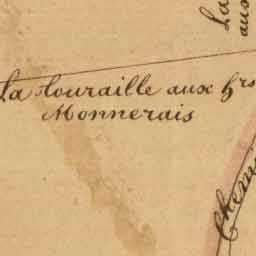 La
aux
La Touraille aux hrs
Monnerais
Chem